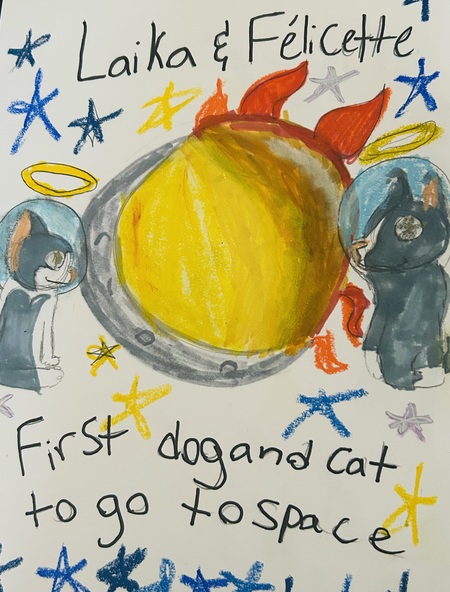 Laika & Félicette
First dog and cat
to go to space